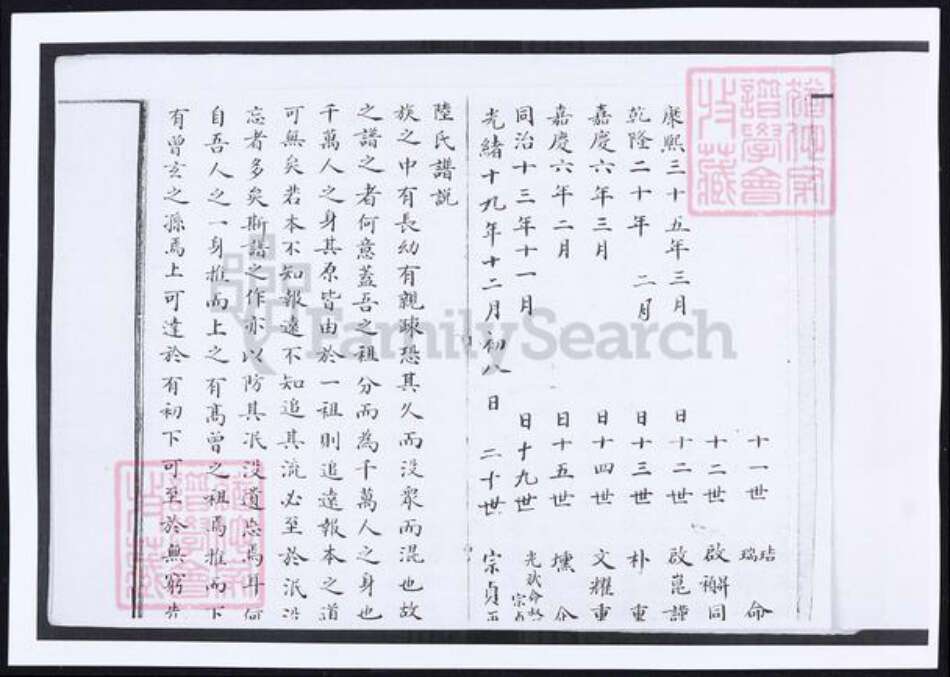 十一世 琣瑞 命
十二世 啟 同
康熙三十五年三月 日十二世 啟崑謹
乾隆二十年 二月 日十三世 朴 重
嘉慶六年三月 日十四世 文耀重
嘉慶六年二月 日十五世 壎
同治十三年十一月 日十九世 光斌命 宗貞
光緒十九年十二月初八日 二十世 宗貞
陸氏譜説
族之中有長幼有親疎恐其久而没衆而混也故
之譜之者何意蓋吾之祖分而為千萬人之身也
千萬人之身其原皆由於一祖則追遠報本之道
可無矣若本不知報遠不知追其流必至於泯没
忘者多矣斯譜之作亦以防其泯没遺忘焉耳何
自吾人之一身推而上之有髙曾之祖焉推而下
有曾玄之孫焉上可達於有初下可至於無窮先
猶他家譜學會收藏
FamilySearch